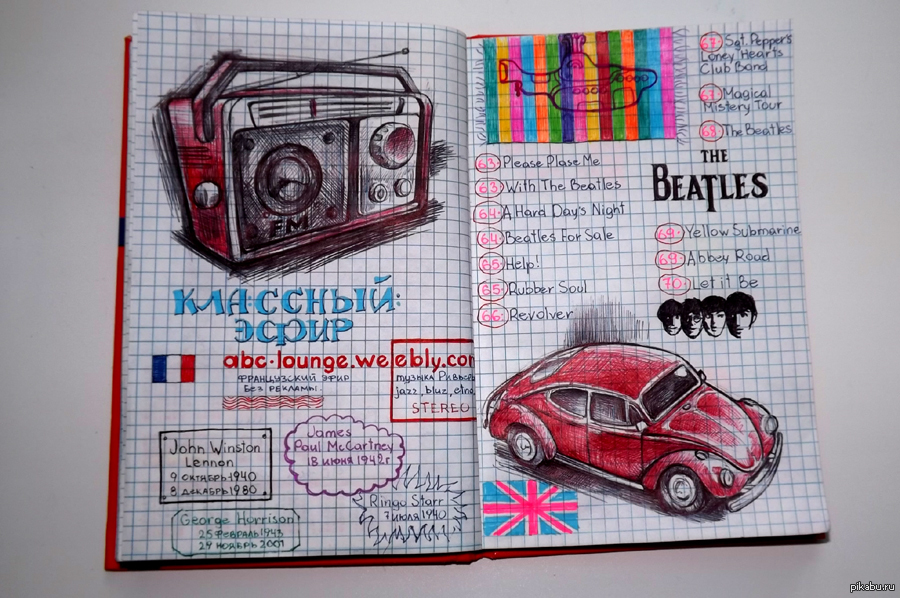 FM
КЛАССНЫЙ:
ЭФИР
abc-lounge.weebly.com
ФРАНЦУЗСКИЙ ЭФИР
БЕЗ РЕКЛАМЫ.
музыка Ривьеры
jazz, bluz, etno,
STEREO
John Winston
Lennon
9 октябрь 1940
8 декабрь 1980
James
Paul McCartney
18 июня 1942г
Ringo Starr
7 июля 1940
George Harrison
25 февраль 1943
29 ноябрь 2001
67. Sgt. Pepper's
Loney Hearts
Club Band
67. Magical
Mistery Tour
68. The Beatles
THE
BEATLES
63. Please Plase Me
63. With The Beatles
64. A Hard Day's Night
64. Beatles For Sale
65. Help!
65. Rubber Soul
66. Revolver
69. Yellow Submarine
69. Abbey Road
70. Let it Be
pikabu.ru